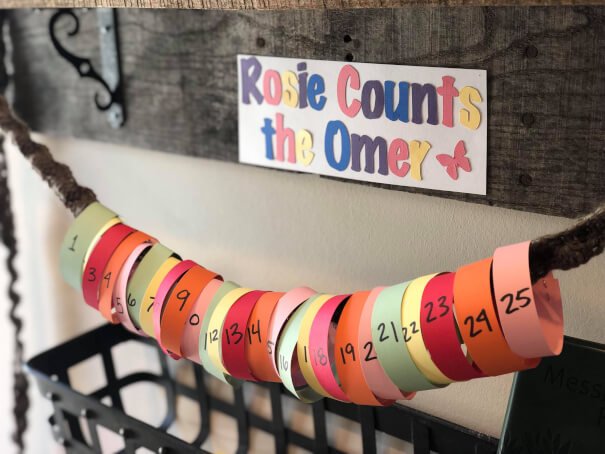 Rosie Counts
the Omer
1 3 4 5 6 7 9 0 1 12 13 14 5 16 1 18 19 2 21 22 23 24 25